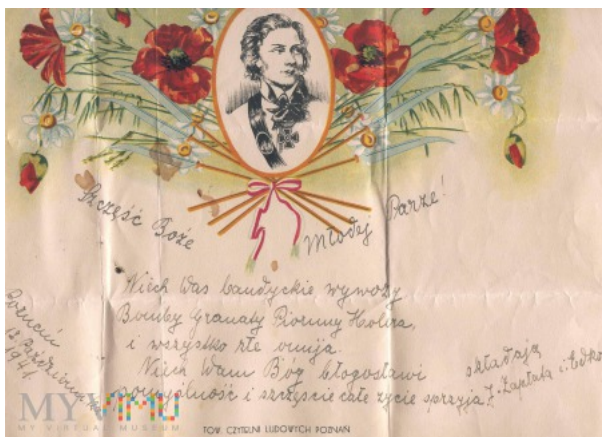 Szczęść Boże
Młodej Parze!
Niech Was bandyckie wywozy
Bomby Granaty Pioruny Holira,
i wszystko złe omija.
Niech Wam Bóg błogosławi
pomyślność i szczęście całe życie sprzyja
składają
J. Zapłata i Edko
Poznań
12 Października
194
MYVIMU
MY VIRTUAL MUSEUM
TOW. CZYTELNI LUDOWYCH POZNAŃ